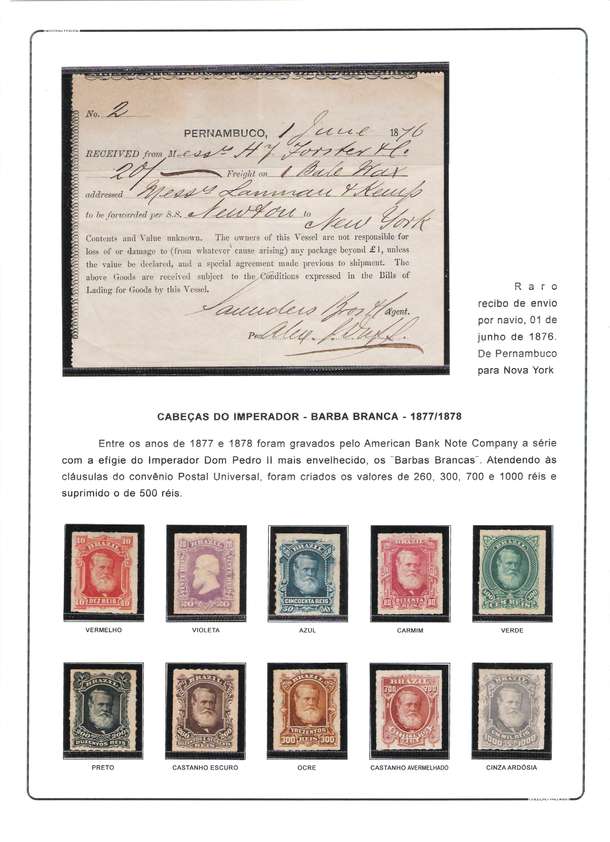 No. 2
PERNAMBUCO, 1 June 1876
RECEIVED from Messrs H J Forster & Co
20/- Freight on 1 Bale Wax
addressed Messrs Lanman & Kemp
to be forwarded per S.S. Newton to
New York
Contents and Value unknown. The owners of this Vessel are not responsible for
loss of or damage to (from whatever cause arising) any package beyond £1, unless
the value be declared, and a special agreement made previous to shipment. The
above Goods are received subject to the Conditions expressed in the Bills of
Lading for Goods by this Vessel.
Saunders Bros & Agent.
Raro
recibo de envio
por navio, 01 de
junho de 1876.
De Pernambuco
para Nova York
CABEÇAS DO IMPERADOR - BARBA BRANCA - 1877/1878
Entre os anos de 1877 e 1878 foram gravados pelo American Bank Note Company a série
com a efígie do Imperador Dom Pedro II mais envelhecido, os ¨Barbas Brancas¨. Atendendo às
cláusulas do convênio Postal Universal, foram criados os valores de 260, 300, 700 e 1000 réis e
suprimido o de 500 réis.
10 BRAZIL 10
10 DEZ REIS 10
20 20
BRAZIL
50 CINCOENTA REIS 50
BRAZIL
80 OITENTA REIS 80
BRAZIL
100 CEM REIS 100
VERMELHO VIOLETA AZUL CARMIM VERDE
BRAZIL
200 DUZENTOS REIS 200
BRAZIL
BRAZIL
TREZENTOS
300 REIS 300
BRAZIL
700 700
BRAZIL
UM MIL REIS
1000 1000
PRETO CASTANHO ESCURO OCRE CASTANHO AVERMELHADO CINZA ARDÓSIA